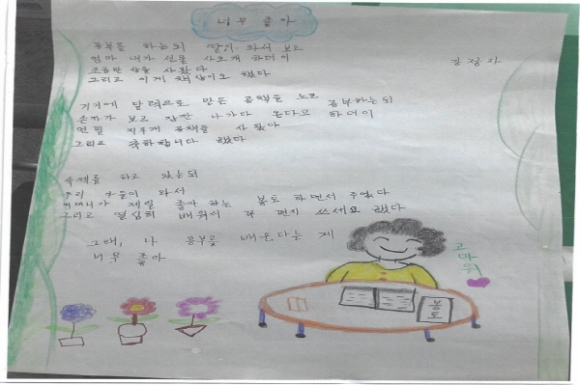 너무 좋아
공부를 하는데 딸이 와서 보고
엄마 내가 선물 사오께 하더이
조그만 상을 사왔다
그리고 이게 책상이요 했다
거기에 달력으로 만든 공책을 노코 공부하는데
손자가 보고 잠깐 나가다 온다으 하더이
연필 지우게 공책을 사왔다
그리고 축하합니다 했다
숙제를 하고 있는데
우리 아들이 와서
어머니가 제일 좋아하는 봉토 하면서 주었다
그리고 열심히 배워서 꼭 편지 쓰세요 했다
그래, 나 공부를 배운다는 게
너무 좋아
고마워
봉토